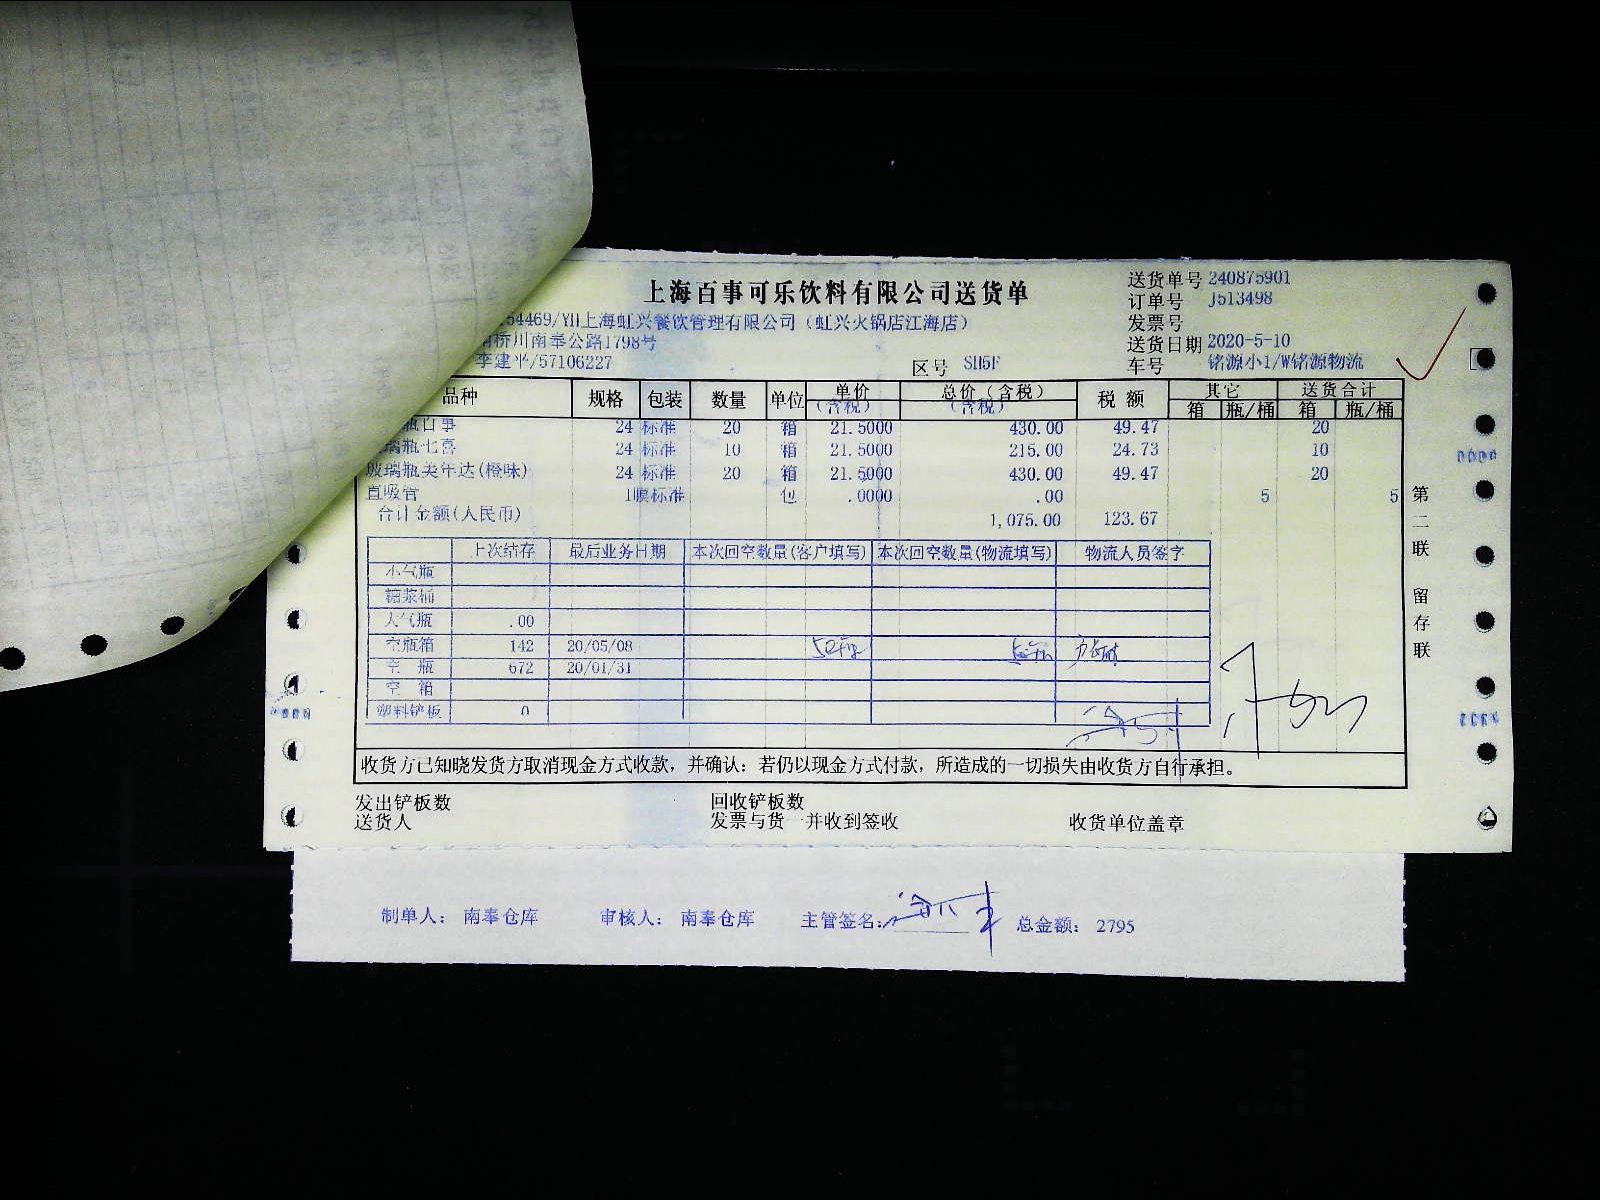 上海百事可乐饮料有限公司送货单
送货单号 240875901
订单号 J513498
发票号
送货日期 2020-5-10
车号 铭源小1/W铭源物流
54469/YH上海虹兴餐饮管理有限公司（虹兴火锅店江海店）
桥川南奉公路1798号
李建平/57106227
区号 SH5F
品种 规格 包装 数量 单位 单价（含税） 总价（含税） 税额 其它 送货合计
箱 瓶/桶 箱 瓶/桶
瓶百事 24 标准 20 箱 21.5000 430.00 49.47 20
璃瓶七喜 24 标准 10 箱 21.5000 215.00 24.73 10
玻璃瓶美年达(橙味) 24 标准 20 箱 21.5000 430.00 49.47 20
直吸管 1膜标准 包 .0000 .00 5 5
合计金额(人民币) 1,075.00 123.67
上次结存 最后业务日期 本次回空数量(客户填写) 本次回空数量(物流填写) 物流人员签字
小气瓶
糖浆桶
大气瓶 .00
空瓶箱 142 20/05/08
空瓶 672 20/01/31
空箱
塑料铲板 0
第二联 留存联
收货方已知晓发货方取消现金方式收款，并确认：若仍以现金方式付款，所造成的一切损失由收货方自行承担。
发出铲板数 回收铲板数
送货人 发票与货一并收到签收 收货单位盖章
制单人： 南奉仓库 审核人： 南奉仓库 主管签名： 总金额： 2795